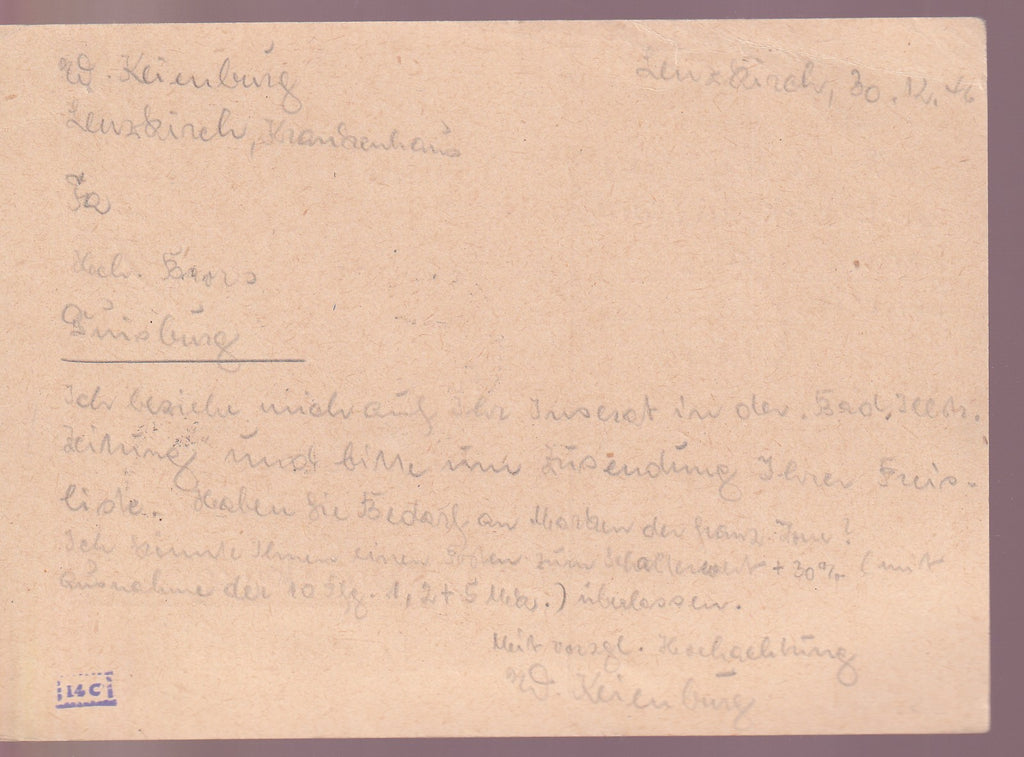 Keienburg
Lenzkirch, 30.12.46
Lenzkirch, Krankenhaus
Fa
Hch.
Duisburg
Ich beziehe mich auf Ihr Inserat in der Bad.
Zeitung und bitte um Zusendung Ihrer Preis-
liste. Haben Sie Bedarf an Marken der franz. Zone?
Ich könnte Ihnen einen Posten zum Schalterwert + 30% (mit
Ausnahme der 10 Pfg. 1, 2 + 5 Mk.) überlassen.
Mit vorzgl. Hochachtung
Keienburg
14 C